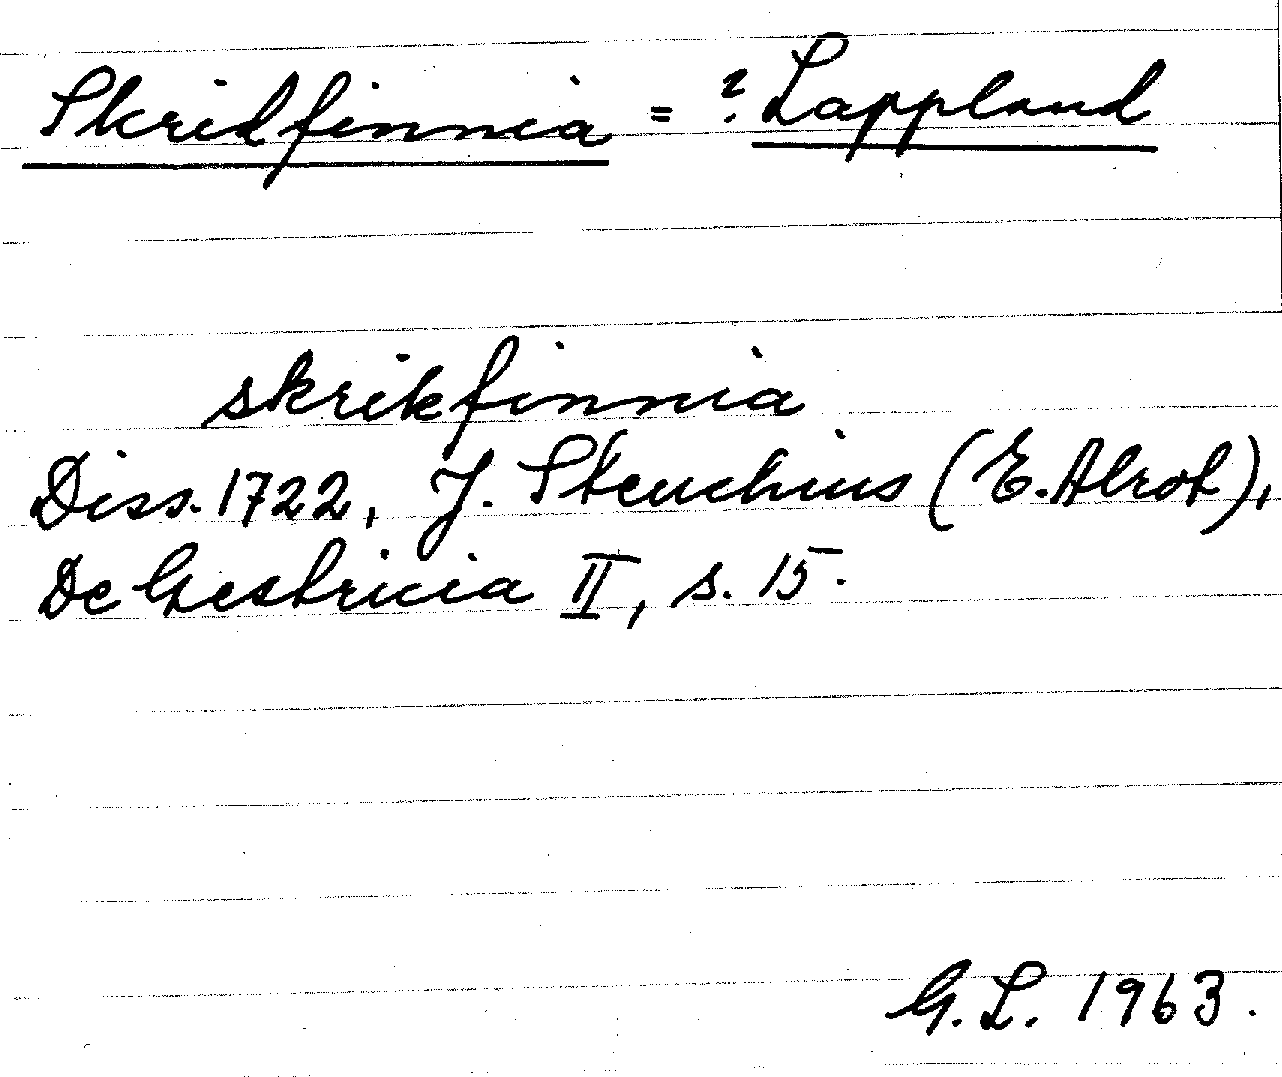 Skridfinnia = ? Lappland
skrikfinnia
Diss. 1722, J. Steuchius (E. Alrot),
De Gestricia II, s. 15.
G. L. 1963.